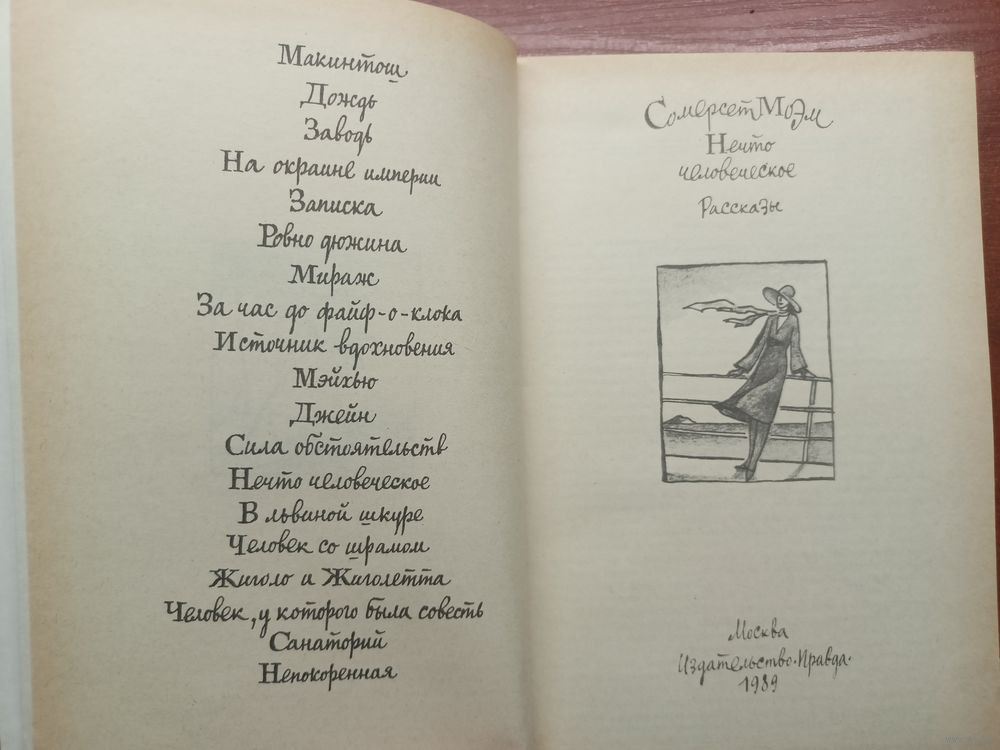 Макинтош
Дождь
Заводь
На окраине империи
Записка
Ровно дюжина
Мираж
За час до файф-о-клока
Источник вдохновения
Мэйхью
Джейн
Сила обстоятельств
Нечто человеческое
В львиной шкуре
Человек со шрамом
Жиголо и Жиголетта
Человек, у которого была совесть
Санаторий
Непокоренная
Сомерсет Моэм
Нечто
человеческое
Рассказы
Москва
Издательство·Правда·
1989